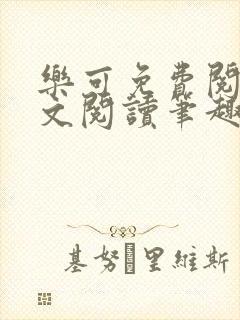 樂可免費閱
文閱讀筆趣
基努里維斯